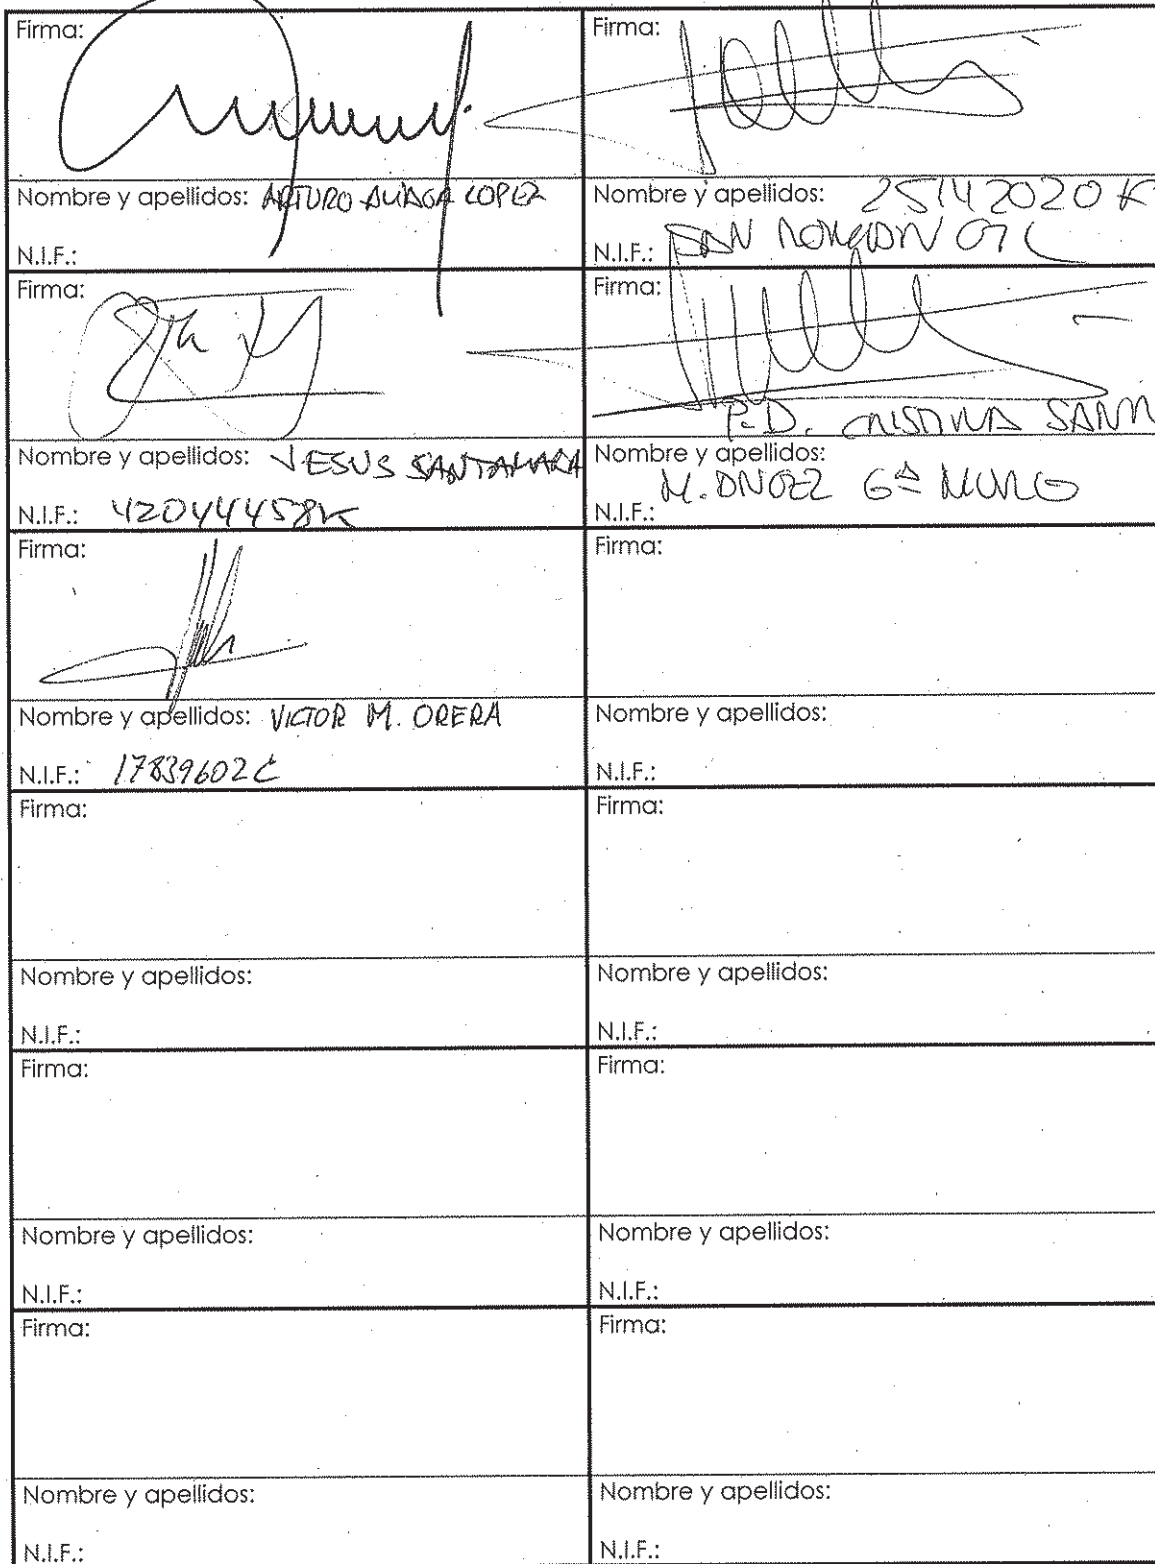 Firma:
Firma:
Nombre y apellidos: ARTURO ALIAGA LOPEZ
Nombre y apellidos: 25142020 K
N.I.F.:
N.I.F.: SAN
Firma:
Firma:
P.D. CRISTINA SANM
Nombre y apellidos: JESUS SANTAMARIA
Nombre y apellidos:
N.I.F.: 42044458K
N.I.F.:
Firma:
Firma:
Nombre y apellidos: VICTOR M. ORERA
Nombre y apellidos:
N.I.F.: 17839602C
N.I.F.:
Firma:
Firma:
Nombre y apellidos:
Nombre y apellidos:
N.I.F.:
N.I.F.:
Firma:
Firma:
Nombre y apellidos:
Nombre y apellidos:
N.I.F.:
N.I.F.:
Firma:
Firma:
Nombre y apellidos:
Nombre y apellidos:
N.I.F.:
N.I.F.: